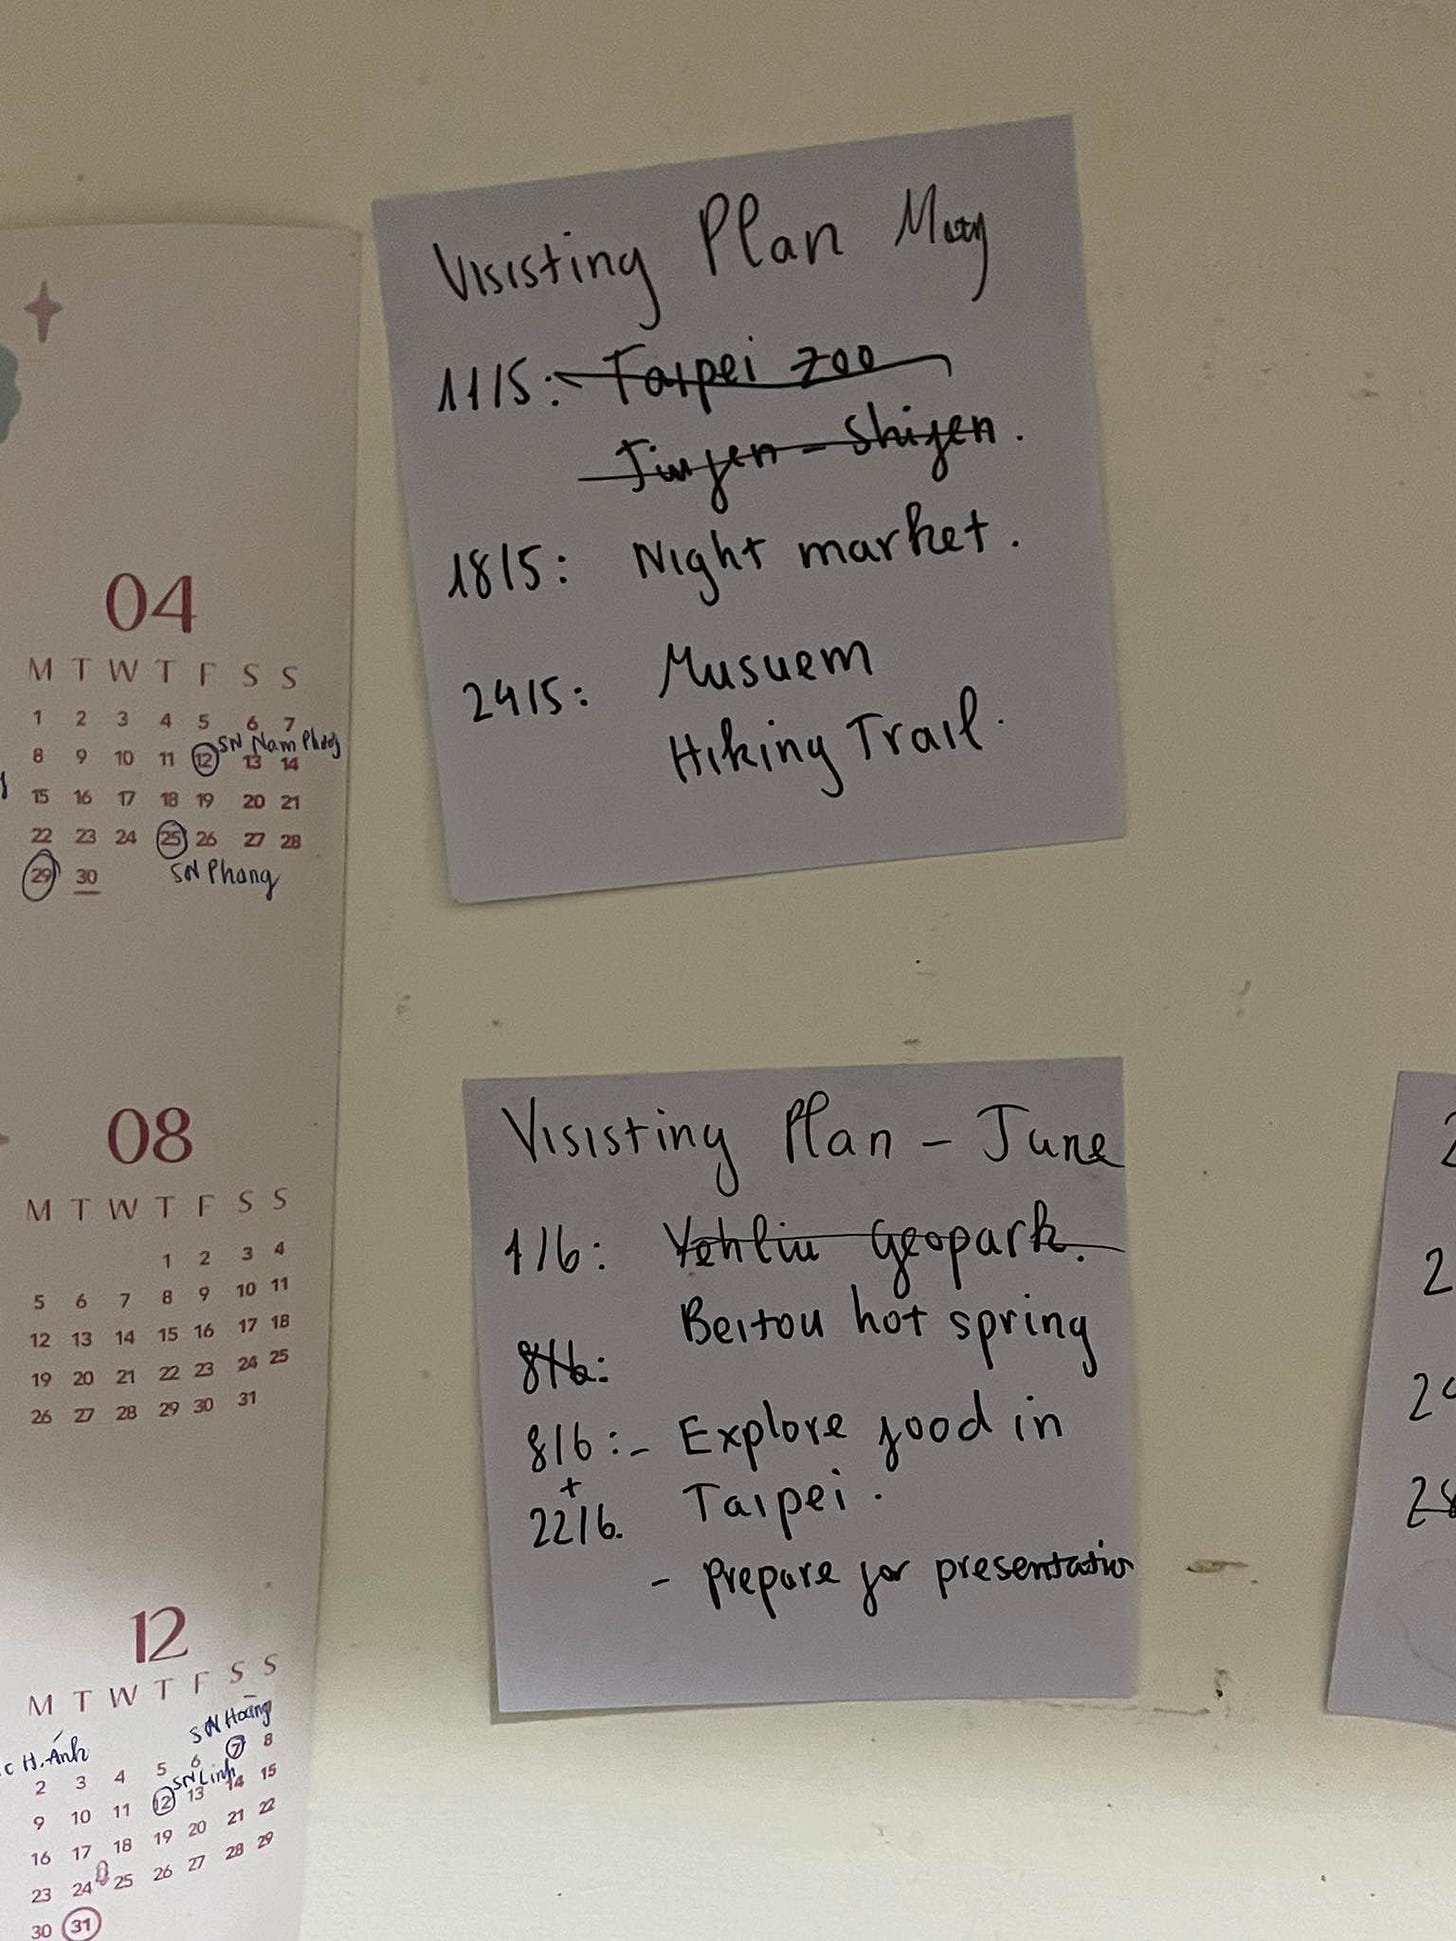 Visisting Plan May
11/5: Taipei zoo
Jingen - Shigen.
18/5: Night market.
24/5: Musuem
Hiking Trail.
Visisting Plan - June
1/6: Yehliu Geopark.
Beitou hot spring
8/6:
8/6:- Explore food in
+
22/6. Taipei.
- Prepare for presentation
04
M T W T F S S
1 2 3 4 5 6 7
SN Nam Phong
8 9 10 11 12 13 14
15 16 17 18 19 20 21
22 23 24 25 26 27 28
29 30
SN Phang
08
M T W T F S S
1 2 3 4
5 6 7 8 9 10 11
12 13 14 15 16 17 18
19 20 21 22 23 24 25
26 27 28 29 30 31
12
M T W T F S S
SN Hoàng
H.Ánh
5 6 7 8
2 3 4
SN Linh
9 10 11 12 13 14 15
16 17 18 19 20 21 22
23 24 25 26 27 28 29
30 31